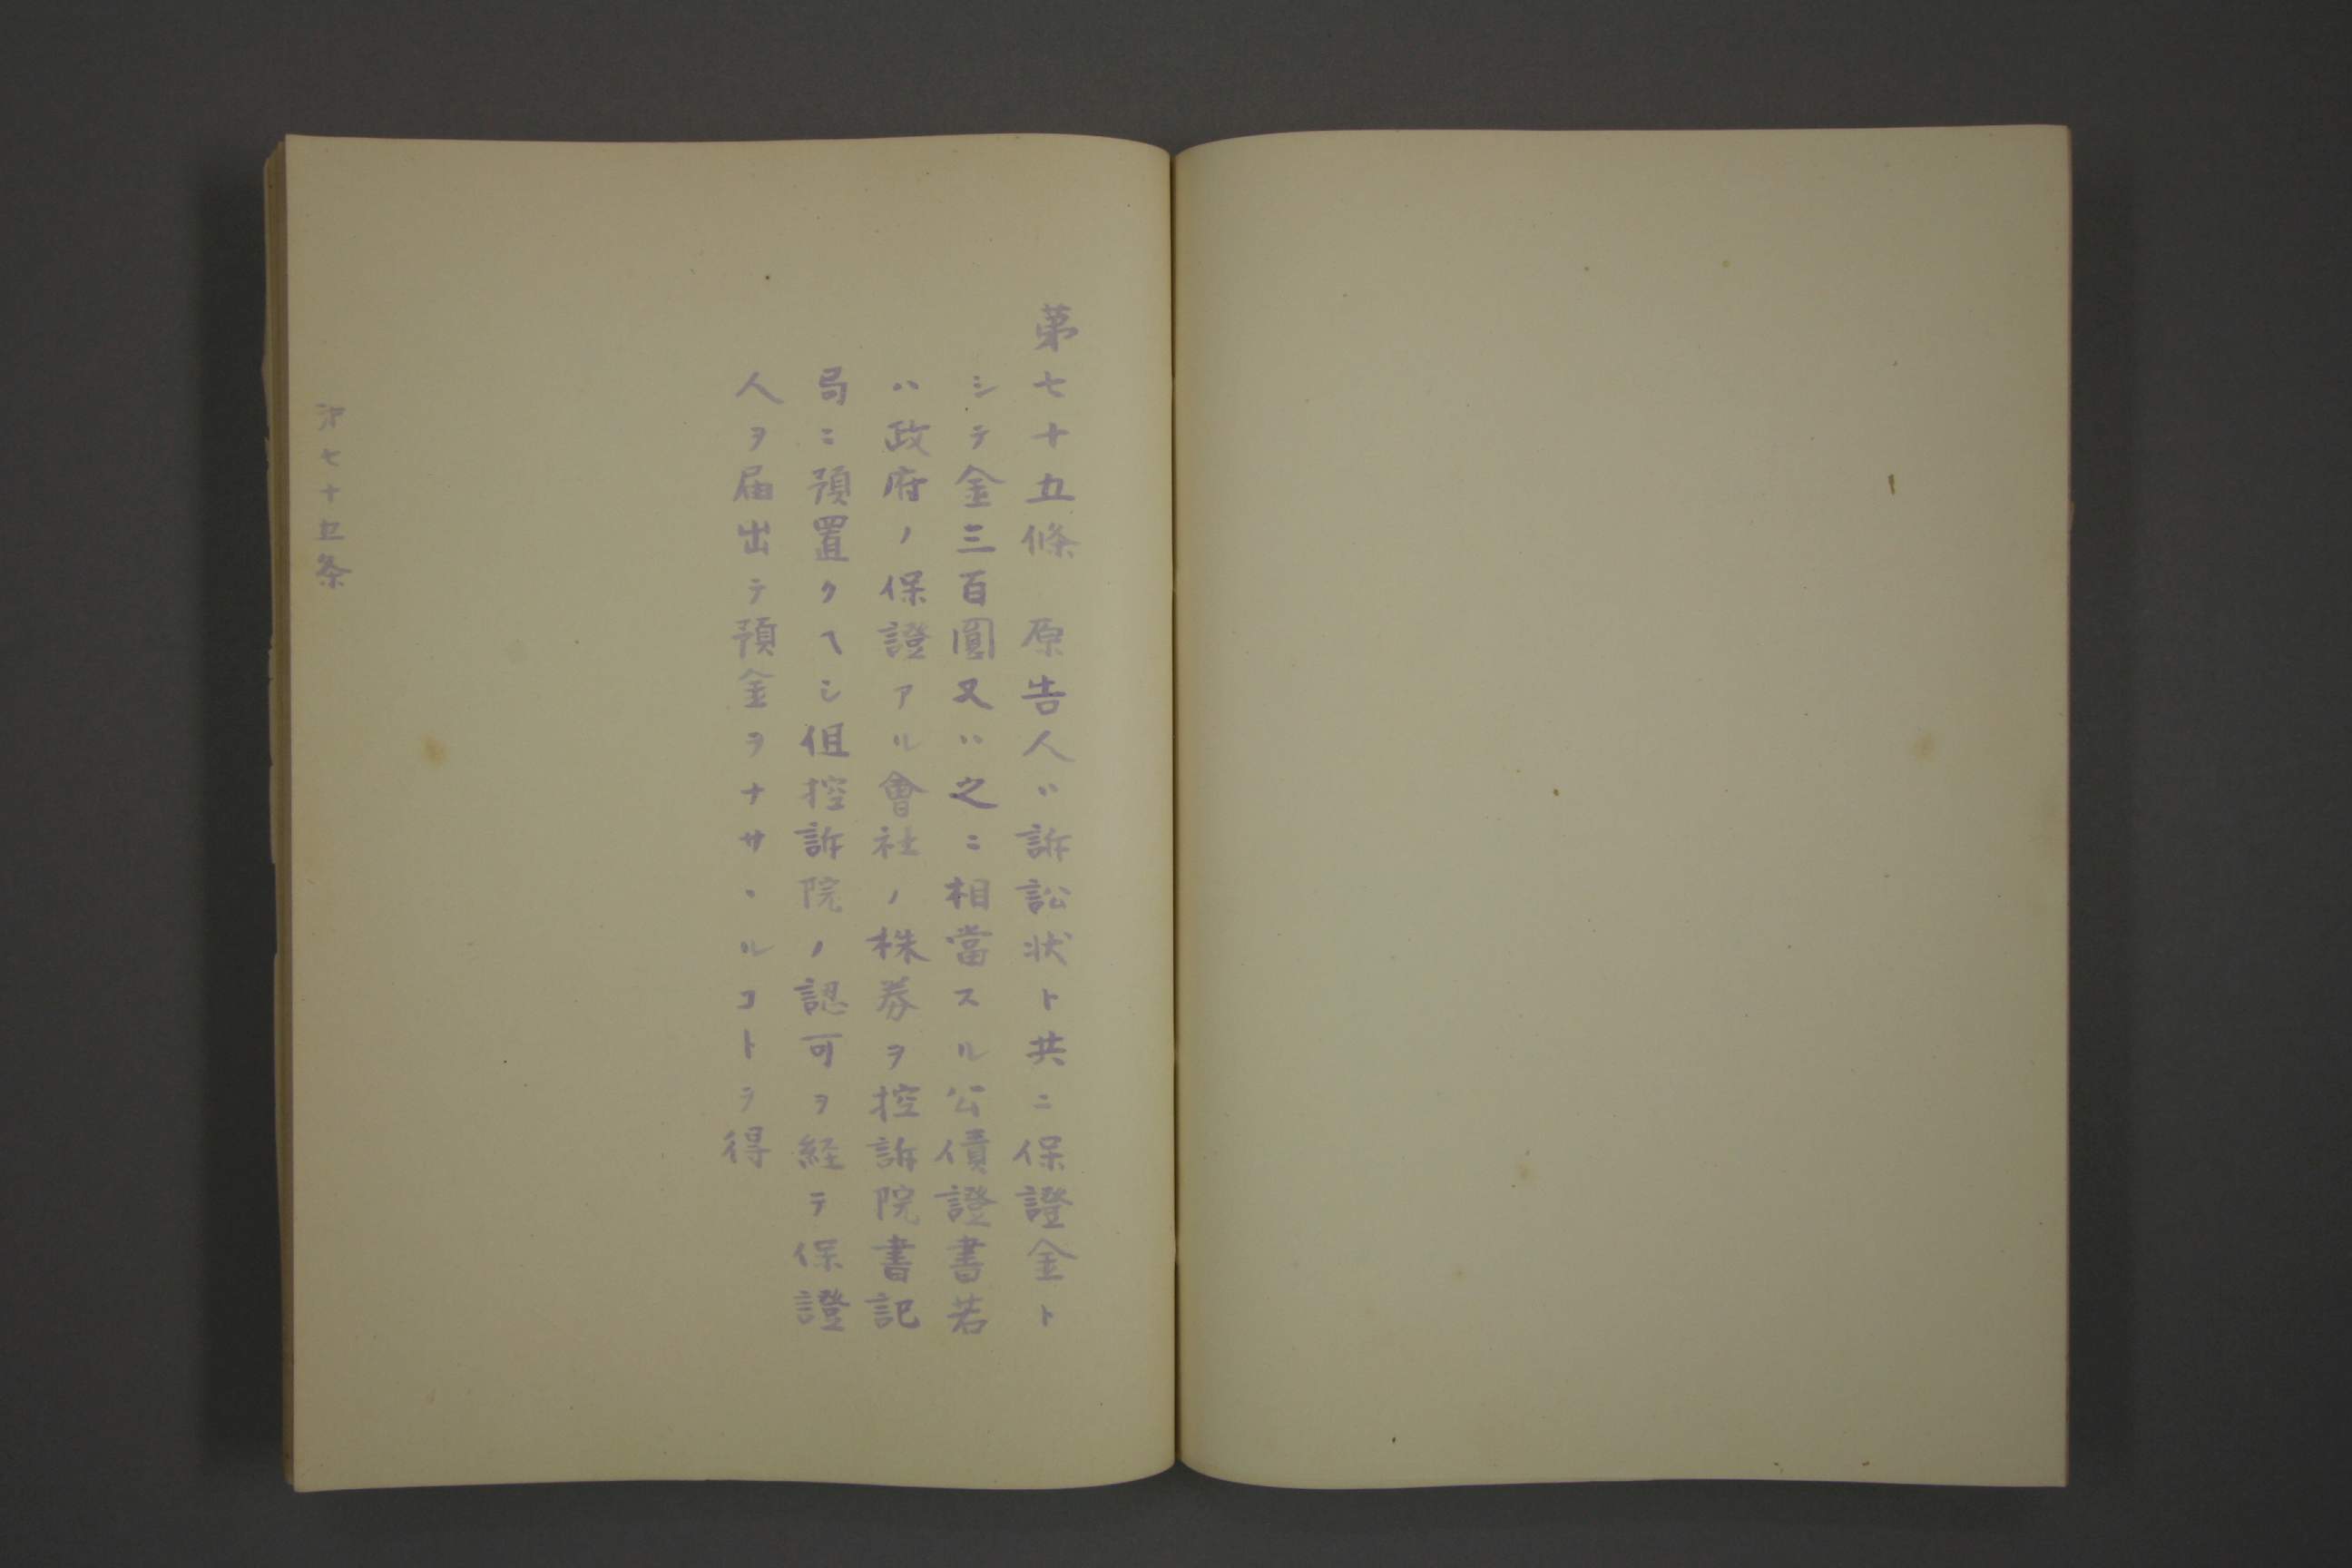 第七十五條　原告人ハ訴訟状ト共ニ保證金ト
シテ金三百圓又ハ之ニ相當スル公債證書若
ハ政府ノ保證アル會社ノ株券ヲ控訴院書記
局ニ預置クヘシ但控訴院ノ認可ヲ経テ保證
人ヲ届出テ預金ヲナサヽルコトヲ得
第七十五条